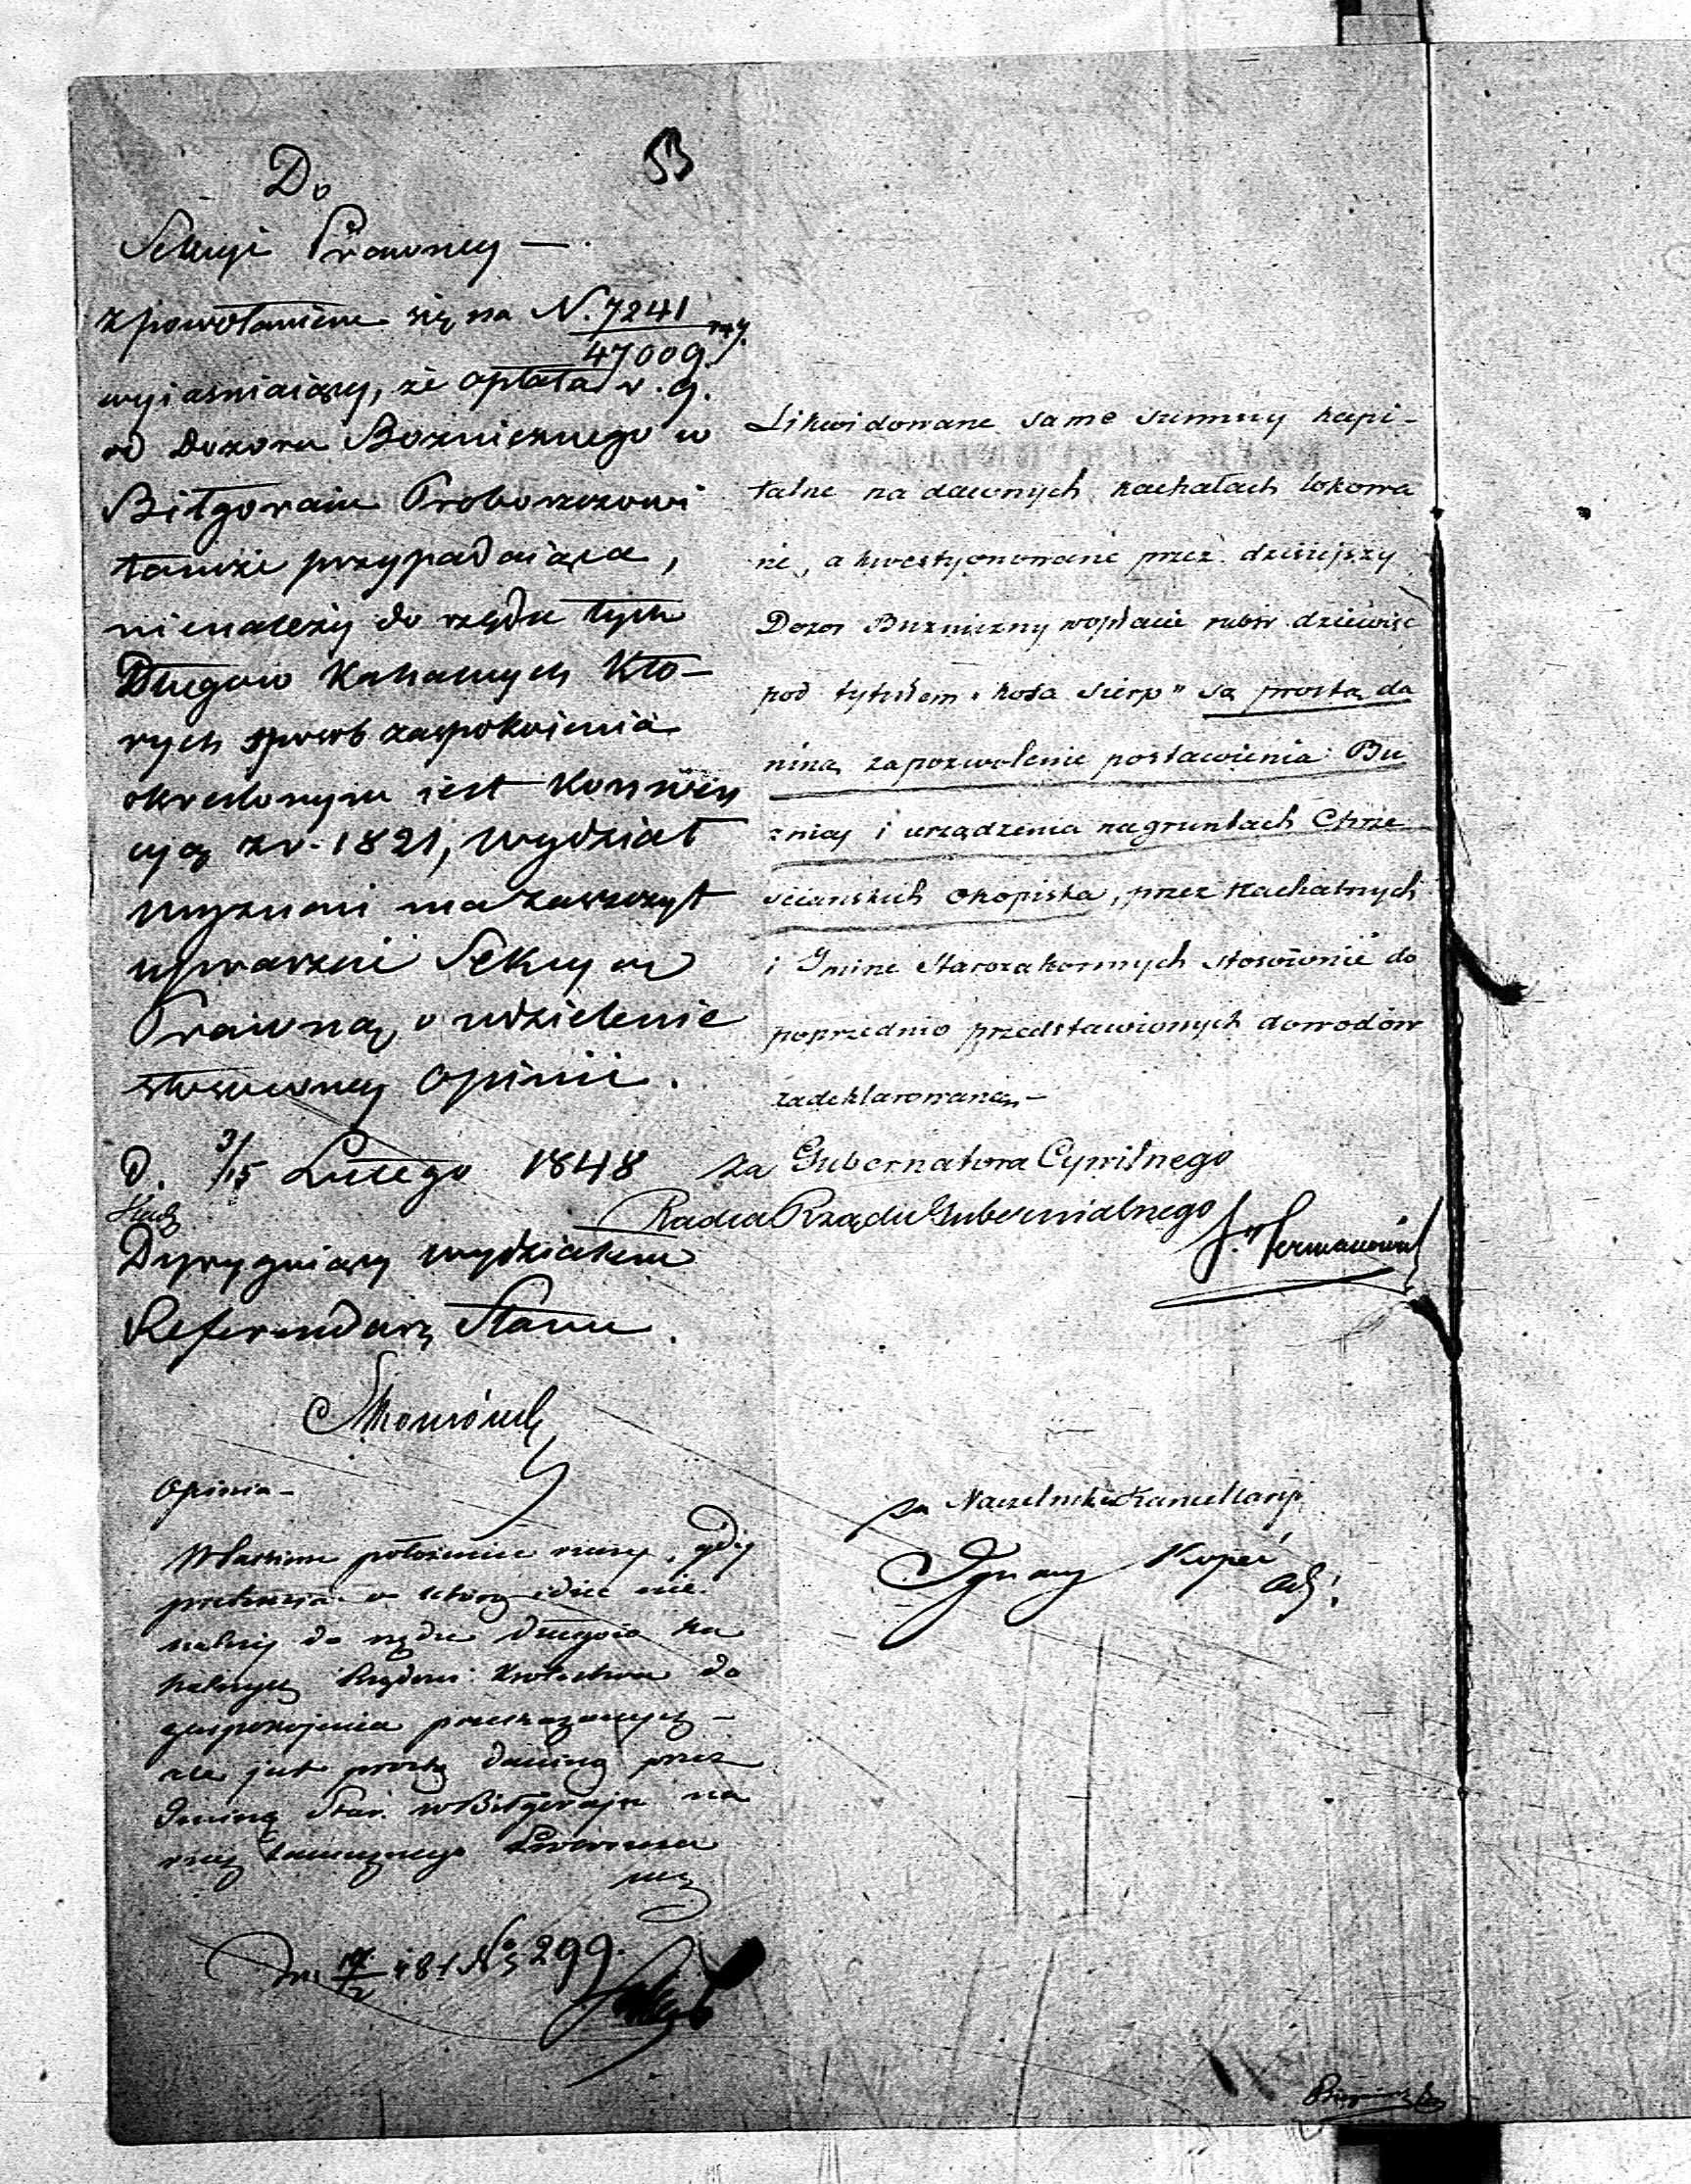 53
Do
Sekcyi Prawney —
z powołaniem się na N. 7241
47009
wyiaśniaiący, że opłata r. s.
od Dozoru Boźniczego w
Biłgoraiu Proboszczowi
tamże przypadaiąca,
nienależy do rzędu tych
Długow Kahalnych Któ-
rych sposob zaspokoienia
określonym iest Konwen
cyą z r. 1821, Wydział
Wyznań ma zaszczyt
upraszać Sekcyą
Prawną, o udzielenie
stosowney Opinii.
D. 3/15 Lutego 1848
Dyryguiący Wydziałem
Referendarz Stanu.
Opinia –
Właściwe położenie rzeczy, gdy
pretensia o którą idzie nie
należy do rzędu długów ka
halnych Rządowi Królestwa do
zaspokojenia przekazanych –
ale jest prostą daniną przez
Gminę Star. w Biłgoraju na
rzecz tamecznego Proboszcza
N° 299.
Likwidowane same summy kapi-
talne na dawnych kachałach lokowa
ne, a kwestyonowane przez dzisiejszy
Dozor Buzniczny w opłacie rubsr dziewięć
pod tytułem „kosa sierp" są prostą da
niną za pozwolenie postawienia Bu
znicy i urządzenia na gruntach Chrze
ściańskich okopiska, przez Kachalnych
i Gminę Starozakonnych stosownie do
poprzednio przedstawionych dowodów
zadeklarowaną. –
za Gubernatora Cywilnego
Radca Rządu Gubernialnego
za Naczelnika Kancellaryi
Ignacy Kopeć